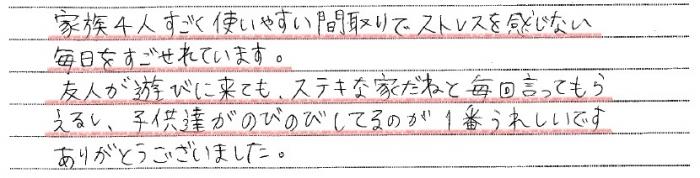 家族4人すごく使いやすい間取りでストレスを感じない
毎日をすごせれています。
友人が遊びに来ても、ステキな家だねと毎回言ってもら
えるし、子供達がのびのびしてるのが1番うれしいです
ありがとうございました。